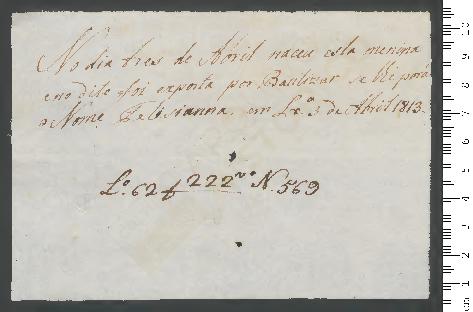 No dia tres de Abril naceu esta menina
e no dito foi exposta por Bautizar se lhe porá
o Nome Felisianna. em Lxª 3 de Abril 1813.
Lº 62 f 222 vº Nº 569